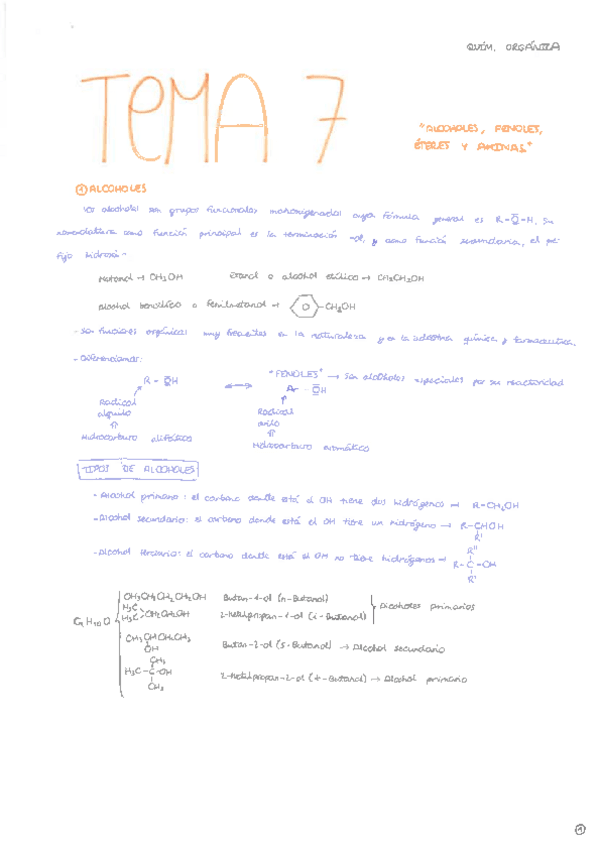 QUÍM. ORGÁNICA
TEMA 7
"ALCOHOLES, FENOLES,
ÉTERES Y AMINAS"
① ALCOHOLES
Los alcoholes son grupos funcionales monooxigenados cuya fórmula general es R-O-H. Su
nomenclatura como función principal es la terminación -ol, y como función secundaria, el pre-
fijo hidroxi-
Metanol → CH3OH Etanol o alcohol etílico → CH3CH2OH
Alcohol bencílico o fenilmetanol → -CH2OH
- Son funciones orgánicas muy frecuentes en la naturaleza y en la industria química y farmacéutica.
- Diferenciamos:
"FENOLES" → Son alcoholes especiales por su reactividad
R - OH ↔ Ar - OH
Radical Radical
alquilo arilo
⇑ ⇑
Hidrocarburo alifático Hidrocarburo aromático
TIPOS DE ALCOHOLES
- Alcohol primario: el carbono donde está el OH tiene dos hidrógenos → R-CH2OH
- Alcohol secundario: el carbono donde está el OH tiene un hidrógeno → R-CHOH
R'
R''
- Alcohol terciario: el carbono donde está el OH no tiene hidrógenos → R-C-OH
R'
CH3CH2CH2CH2OH Butan-1-ol (n-Butanol)
H3C
H3C >CHCH2OH 2-Metilpropan-1-ol (i-Butanol) Alcoholes primarios
C4H10O
CH3CHCH2CH3 Butan-2-ol (s-Butanol) → Alcohol secundario
OH
CH3
H3C-C-OH 2-Metilpropan-2-ol (t-Butanol) → Alcohol primario
CH3
1